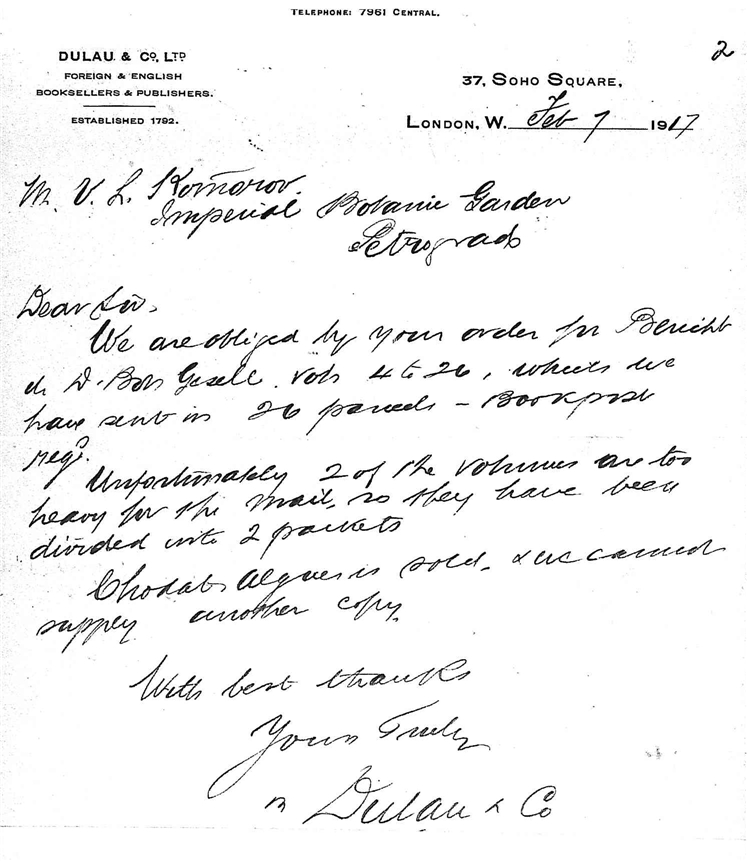 TELEPHONE: 7961 CENTRAL.
2
DULAU & Co, LTD
FOREIGN & ENGLISH
BOOKSELLERS & PUBLISHERS.
ESTABLISHED 1792.
37, SOHO SQUARE,
LONDON, W. Feb 7 1917
M. V. L. Komarov.
Imperial Botanic Garden
Petrograd
Dear Sir,
We are obliged by your order for Bericht
d. D. Bot. Gesell. vols 4 to 26, which we
have sent in 26 parcels – Bookpost
regd.
Unfortunately 2 of the volumes are too
heavy for the mail, so they have been
divided into 2 packets
Chodat's Algues is sold, & we cannot
supply another copy.
With best thanks
Yours Truly
Dulau & Co